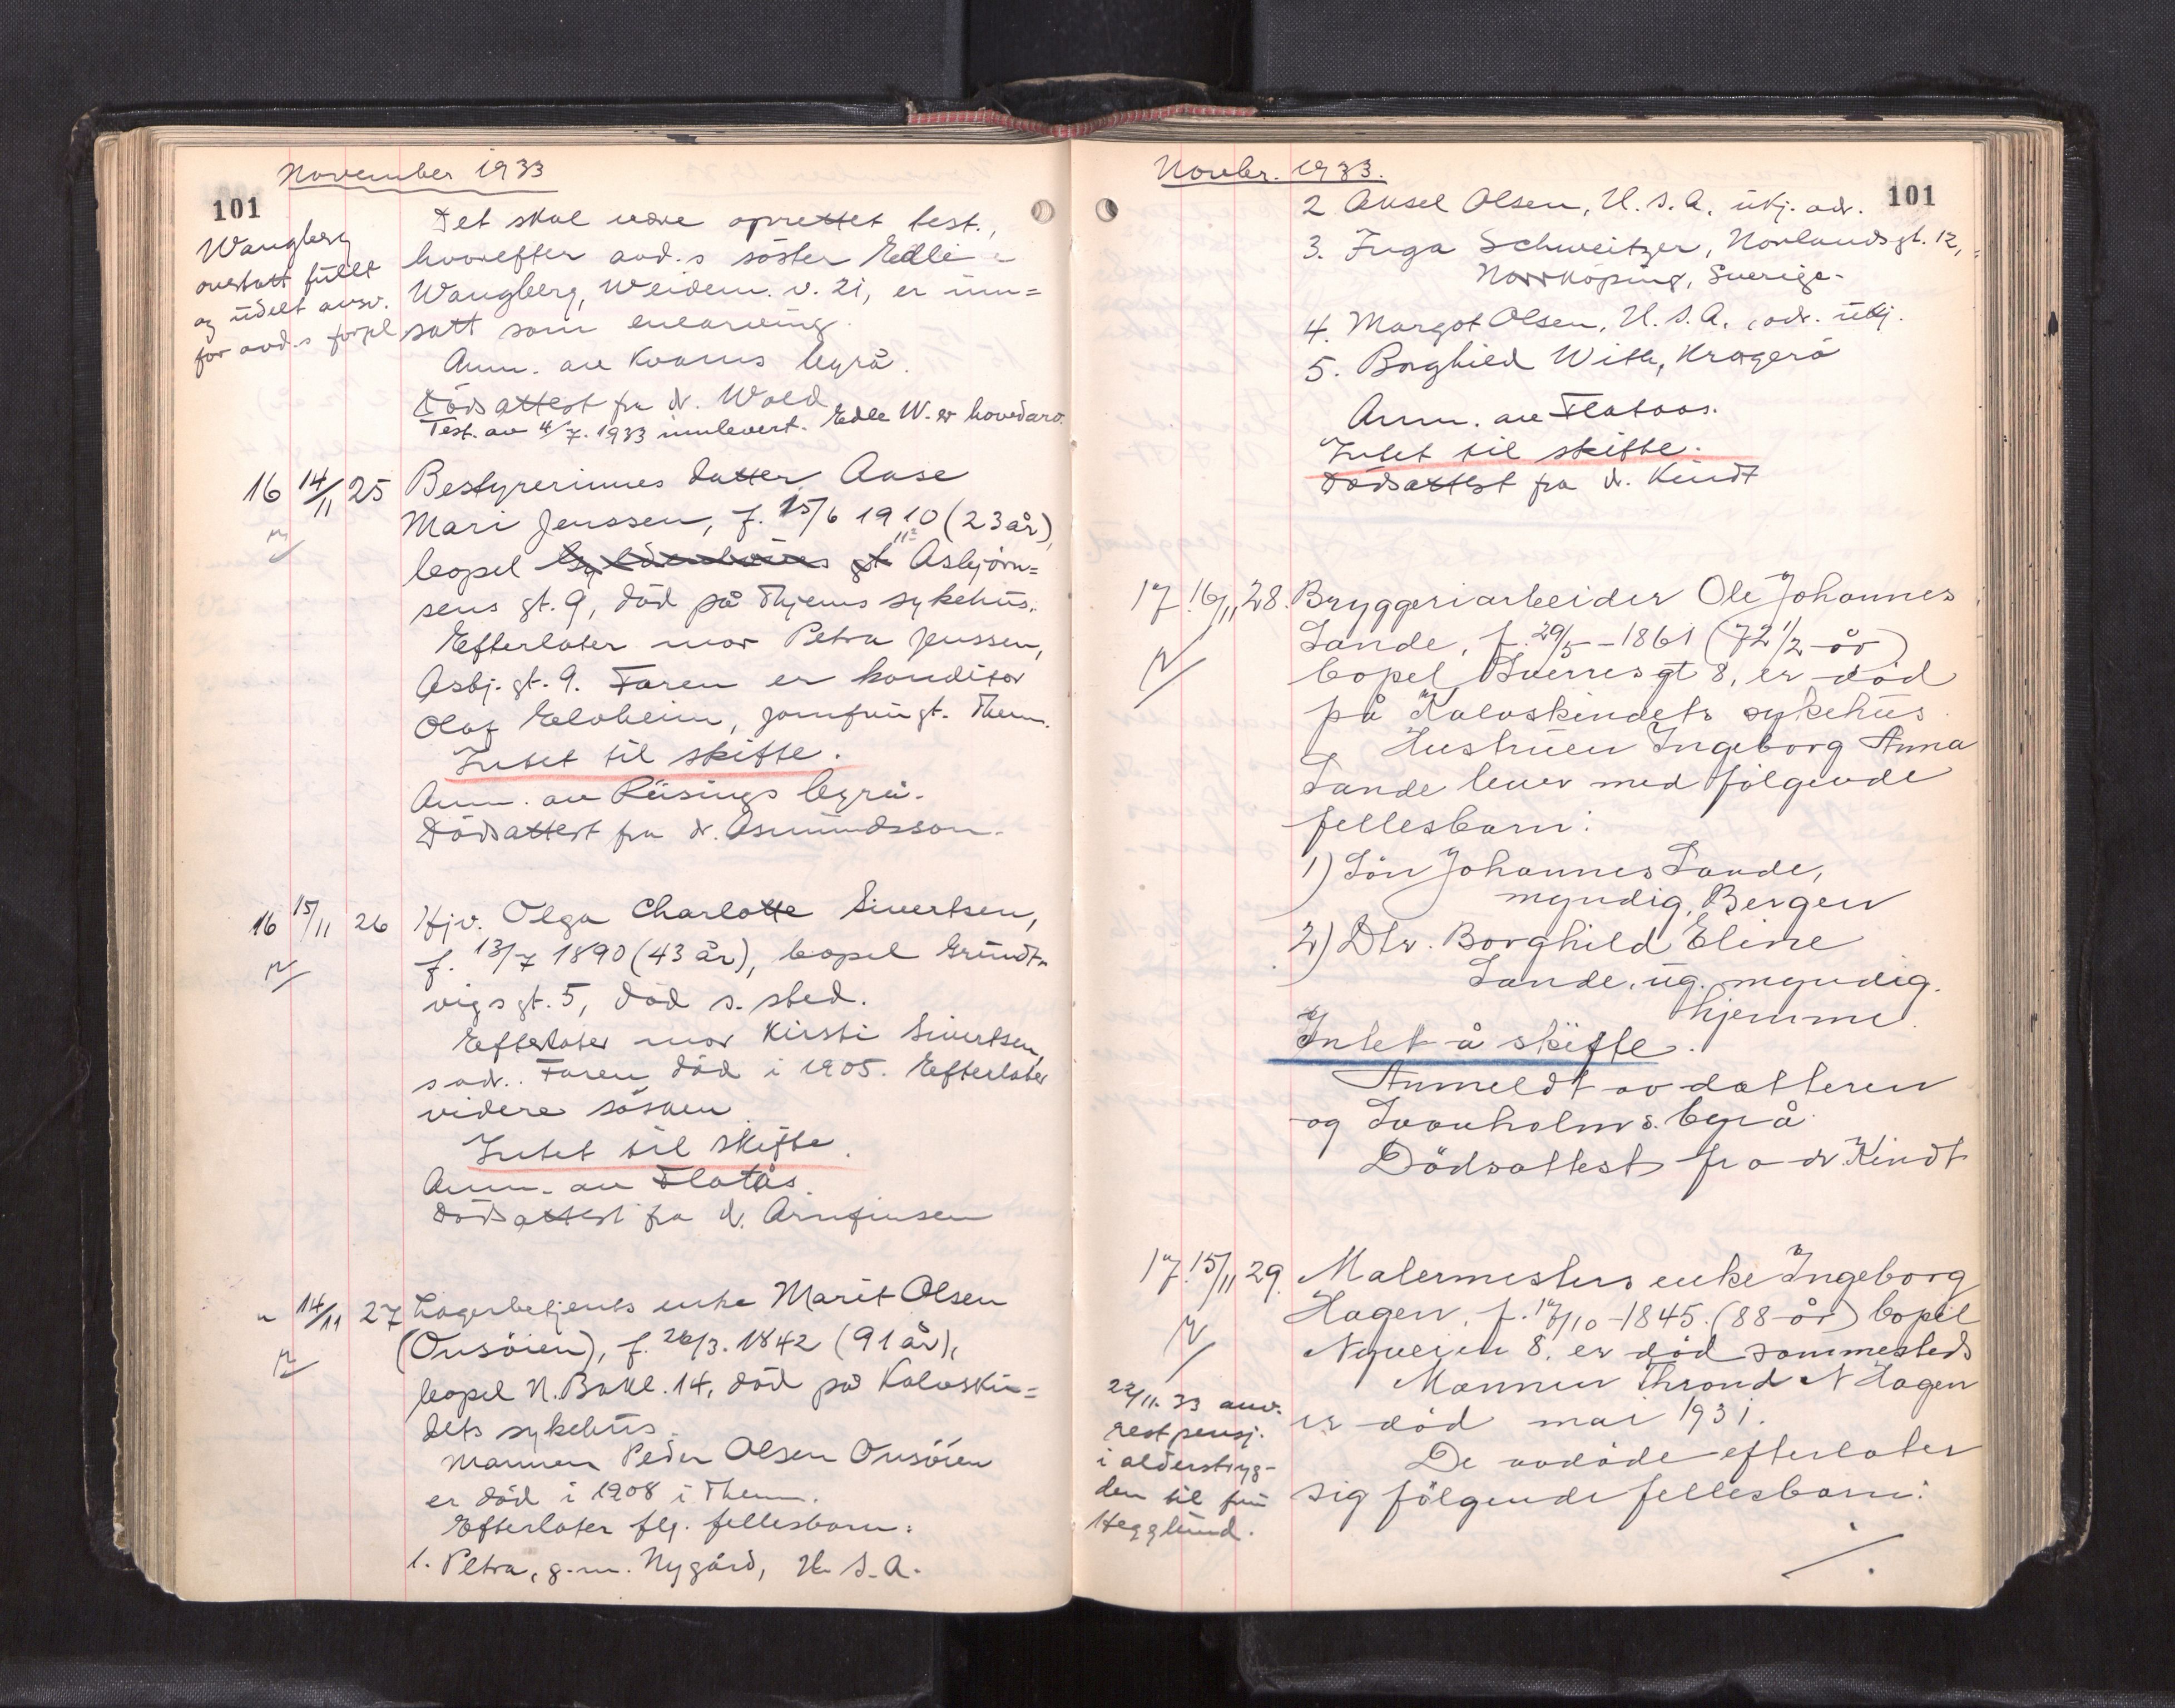 November 1933
101
Wangberg
overtatt fullt
og udelt ansv.
for avd.s forpl
Det skal være oprettet test.,
hvorefter avd.s søster Edle
Wangberg, Weidem. v. 21, er inn=
satt som enearving.
Anm. av Kvams byrå.
Dödsattest fra dr. Wold
Test. av 4/7. 1933 innlevert. Edle W. er hovedarv.
16 14/11 25 Bestyrerinnes datter Aase
Mari Jenssen, f. 15/6 1910 (23 år),
bopel Asbjörn=
sens gt. 9, död på Thjems sykehus.
Efterlater mor Petra Jenssen,
Asbj. gt. 9. Faren er konditor
Olaf Elvheim, Jomfrugt. Thjem.
Intet til skifte.
Anm. av Riisings byrå.
Dödsattest fra dr. Asmundsson.
16 15/11 26 Hjv. Olga Charlotte Sivertsen,
f. 13/7 1890 (43 år), bopel Grundt-
vigs gt. 5, död s. sted.
Efterlater mor Kirsti Sivertsen,
s adr.. Faren död i 1905. Efterlater
videre søsken
Intet til skifte.
Anm. av Flatås.
Dödsattest fra dr. Arnfinsen
" 14/11 27 Lagerbetjents enke Marit Olsen
(Onsöien), f. 26/3. 1842 (91 år),
bopel N. Bakl. 14, död på Kalvskin=
dets sykehus.
Mannen Peder Olsen Onsöien
er död i 1908 i Thjem.
Efterlater flg. fellesbarn:
1. Petra, g.m. Nygård, U.S.A.
Novbr. 1933.
101
2 Aksel Olsen, U.S.A. ukj. adr.
3. Inga Schweitzer, Norlandsgt. 12,
Norrköping, Sverige.
4. Margot Olsen, U.S.A., adr. ukj.
5. Borghild With, Kragerö
Anm. av Flataas.
Intet til skifte.
Dödsattest fra dr. Kindt
17. 16/11 28. Bryggeriarbeider Ole Johannes
Sande, f. 29/5 - 1861 (72 1/2 år)
bopel Sverresgt 8, er död
på Kalvskindets sykehus.
Hustruen Ingeborg Anna
Sande lever med fölgende
fellesbarn:
1) Sön Johannes Sande,
myndig, Bergen
2) Dtr. Borghild Eline
Sande, ug. myndig.
hjemme.
Intet å skifte.
Anmeldt av datteren
og Svanholms byrå
Dödsattest fra dr. Kindt
17. 15/11 29. Malermesters enke Ingeborg
Hagen, f. 17/10 - 1845. (88 år) bopel
Nyveien 8, er död sammesteds
Mannen Thrond N Hagen
er död mai 1931.
De avdöde efterlater
sig fölgende fellesbarn:
./.
22/11. 33 anv.
restpensj.
i alderstryg-
den til fru
Hegglund.